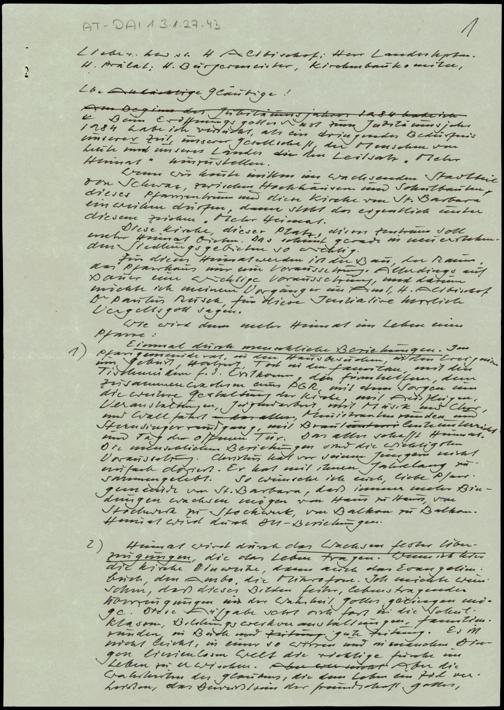 AT-DAI 1 3.1.27.43
1
2
Lieber. hw. H. Altbischof; Herr Landeshptm.
H. Prälat; H. Bürgermeister, Kirchenbaukomitee,
Lb. Andächtige Gläubige!
Am Beginn des Jubiläumsjahres 1984 habe ich
Beim Eröffnungsgottesdienst zum Jubiläumsjahr
1984 habe ich versucht, als ein dringendes Bedürfnis
unserer Zeit, unserer Gesellschaft, der Menschen von
heute und unseres Landes die den Leitsatz „Mehr
Heimat" aufzustellen.
Wenn wir heute mitten im wachsenden Stadtteil
von Schwaz, zwischen Hochhäusern und Schulbauten,
dieses Pfarrzentrum und diese Kirche von St. Barbara
einweihen dürfen, dann steht das eigentlich unter
diesem Zeichen: Mehr Heimat.
Diese Kirche, dieser Platz, dieses Zentrum soll
mehr Heimat bieten. Das scheint gerade in neuerstehen-
den Siedlungsgebieten so wichtig.
Für dieses Heimatwerden ist der Bau, der Raum,
das Pfarrhaus nur eine Voraussetzung. Allerdings auf
Dauer eine wichtige Voraussetzung, und darum
möchte ich meinem Vorgänger im Amt, H. Altbischof
Dr Paulus Rusch, für diese Initiative herzlich
Vergeltsgott sagen.
Wie wird denn mehr Heimat im Leben einer
Pfarre?
1) Einmal durch menschliche Beziehungen. Im
Pfarrgemeinderat, in den Hausbesuchen,
Zusammenwachsen eines PGR, mit dem Sorgen um
die weitere Gestaltung der Kirche, mit Ausflügen,
Veranstaltungen, Jugendarbeit mit Musik und Chor,
und Wallfahrt
Sternsingerrundgang, mit
und Tag der offenen Tür. Das alles schafft Heimat.
Die menschlichen Beziehungen sind die wichtigste
Voraussetzung. Christus hat vor seinen Jüngern nicht
einfach doziert. Er hat mit ihnen jahrelang zu-
sammengelebt. So wünsche ich euch, liebe Pfarr-
gemeinde von St. Barbara, daß immer mehr Bin-
dungen wachsen mögen von Haus zu Haus, von
Stockwerk zu Stockwerk, von Balkon zu Balkon.
Heimat wird durch Du-Beziehungen.
2) Heimat wird durch das Wachsen fester Über-
zeugungen, die das Leben tragen. Wenn ich hier
die Kirche einweihe, dann auch das Evangelien-
buch, den Ambo, die Mikrofone. Ich möchte wün-
schen, daß dieses Bilden fester, lebenstragender
Überzeugungen aus der Wahrheit Gottes gelingen mö-
ge. Diese Aufgabe setzt sich fort in die Schul-
klassen, Bildungsveranstaltungen, Familien-
runden, in Buch und Zeitung gute Zeitung. Es ist
nicht leicht, in einer so wirren und in manchen Din-
gen
Leben zu erwischen. Aber die
Wahrheiten des Glaubens, die dem Leben ein Ziel ver-
heißen, das Bewußtsein der Freundschaft Gottes,